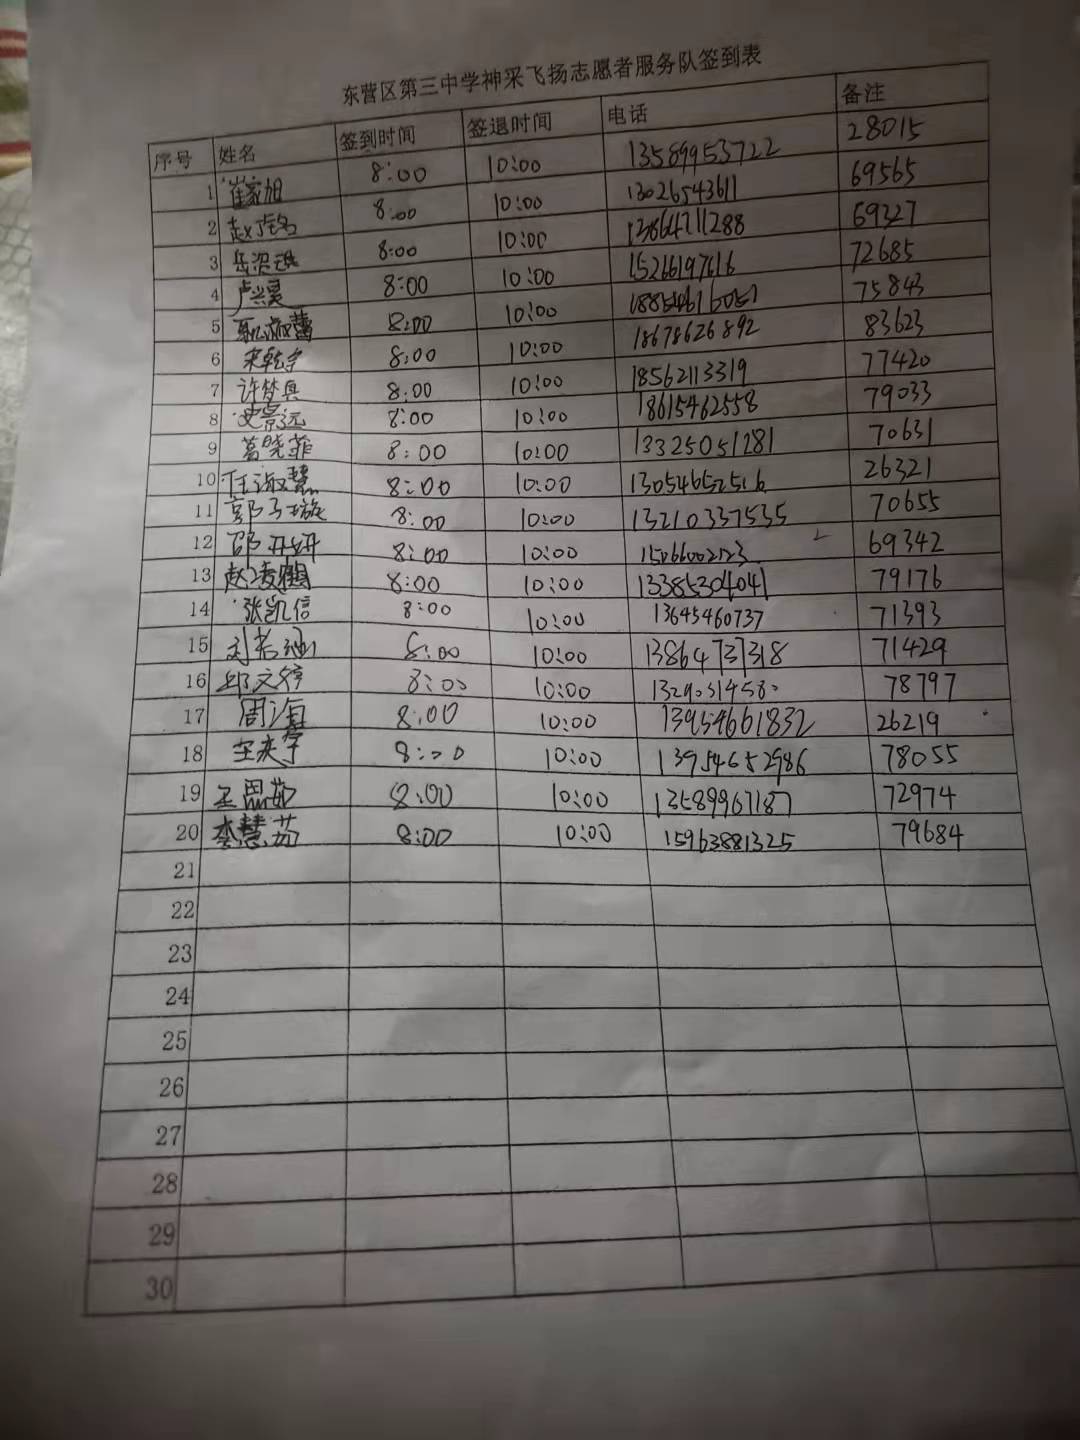 东营区第三中学神采飞扬志愿者服务队签到表
序号 姓名 签到时间 签退时间 电话 备注
1 崔家旭 8:00 10:00 13589953722 28015
2 赵 8:00 10:00 13026543611 69565
3 8:00 10:00 13864711288 69327
4 卢兴昊 8:00 10:00 15266197616 72685
5 8:00 10:00 75843
6 8:00 10:00 18678626892 83623
7 许梦真 8:00 10:00 18562113319 77420
8 史景远 8:00 10:00 18615462558 79033
9 葛晓菲 8:00 10:00 13325051281 70631
10 任淑慧 8:00 10:00 13054652516 26321
11 郭子璇 8:00 10:00 13210337535 70655
12 邵冉妍 8:00 10:00 15066002123 69342
13 赵凌鹤 8:00 10:00 13385304041 79176
14 张凯信 8:00 10:00 13645460737 71393
15 刘若涵 8:00 10:00 13864731318 71429
16 邱文婷 8:00 10:00 78797
17 周海 8:00 10:00 13954661832 26219
18 8:00 10:00 13954652986 78055
19 王思茹 8:00 10:00 13589967187 72974
20 李慧茹 8:00 10:00 15963881325 79684
21
22
23
24
25
26
27
28
29
30